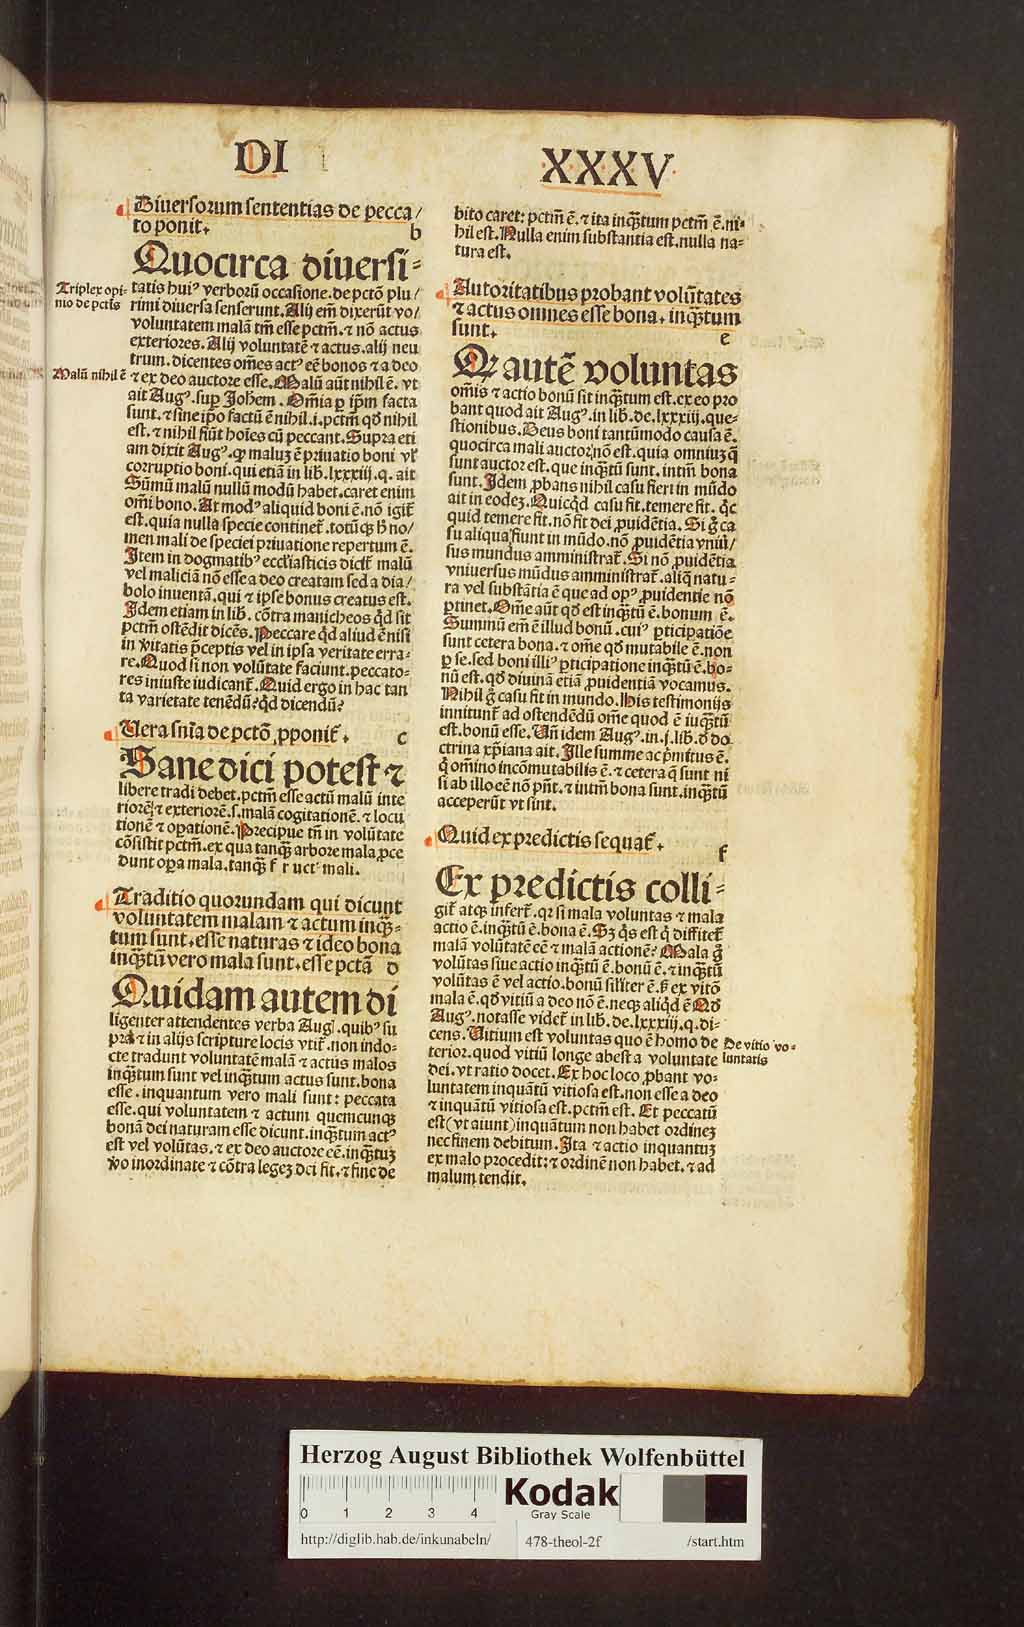 DI
XXXV
Diuersorum sententias de pecca/
to ponit.
b
Quocirca diuersi-
tatis hui⁹ verborū occasione. de pctō plu/
rimi diuersa senserunt. Alij em̄ dixerūt vo/
voluntatem malā tm̄ esse pctm̄. ⁊ nō actus
exteriores. Alij voluntatē ⁊ actus. alij neu
trum. dicentes om̄es act⁹ eē bonos ⁊ a deo
⁊ ex deo auctore esse. Malū aūt nihil ē. vt
ait Aug⁹. sup̄ Johem. Om̄ia p̄ ip̄m facta
sunt. ⁊ sine ip̄o factū ē nihil. i. pctm̄ qd̄ nihil
est. ⁊ nihil fiūt hoīes cū peccant. Supra eti
am dixit Aug⁹. ꝙ maluꝫ ē priuatio boni vl̄
corruptio boni. qui etiā in lib. lxxxiij. q. ait
Sūmū malū nullū modū habet. caret enim
om̄i bono. At mod⁹ aliquid boni ē. nō igit̄
est. quia nulla specie continet̄. totūqꝫ h̄ no/
men mali de speciei priuatione repertum ē.
Item in dogmatib⁹ eccl̄iasticis dicit̄ malū
vel maliciā nō esse a deo creatam sed a dia/
bolo inuentā. qui ⁊ ipse bonus creatus est.
Idem etiam in lib. cōtra manicheos qd̄ sit
pctm̄ ostēdit dicēs. Peccare qd̄ aliud ē nisi
in v̄itatis p̄ceptis vel in ipsa veritate erra-
re. Quod si non volūtate faciunt. peccato-
res iniuste iudicant̄. Quid ergo in hac tan
ta varietate tenēdū? qd̄ dicendū?
Triplex opi-
nio de pctīs
Malū nihil ē
Vera sn̄ia de pctō ꝓponit̄.
c
Sane dici potest ⁊
libere tradi debet. pctm̄ esse actū malū inte
riorē ⁊ exteriorē. s. malā cogitationē. ⁊ locu
tionē ⁊ op̄ationē. Precipue tn̄ in volūtate
cōsistit pctm̄. ex qua tanqꝫ arbore mala ꝓce
dunt op̄a mala. tanqꝫ fruct⁹ mali.
Traditio quorundam qui dicunt
voluntatem malam ⁊ actum inqꝫ-
tum sunt. esse naturas ⁊ ideo bona
inqꝫtū vero mala sunt. esse pctā
d
Quidam autem di
ligenter attendentes verba Aug. quib⁹ su
pra ⁊ in alijs scripture locis vtit̄. non indo-
cte tradunt voluntatē malā ⁊ actus malos
inqꝫtum sunt vel inqꝫtum actus sunt. bona
esse. inquantum vero mali sunt: peccata
esse. qui voluntatem ⁊ actum quemcunqꝫ
bonā dei naturam esse dicunt. inqꝫtum act⁹
est vel volūtas. ⁊ ex deo auctore eē. inqꝫtuꝫ
v̄o inordinate ⁊ cōtra legeꝫ dei fit. ⁊ fine de
bito caret: pctm̄ ē. ⁊ ita inqꝫtum pctm̄ ē. ni-
hil est. Nulla enim substantia est. nulla na-
tura est.
Autoritatibus probant volūtates
⁊ actus omnes esse bona. inqꝫtum
sunt.
e
Qꝛ autē voluntas
om̄is ⁊ actio bonū sit inqꝫtum est. ex eo pro
bant quod ait Aug⁹. in lib. de. lxxxiij. que-
stionibus. Deus boni tantūmodo causa ē.
quocirca mali auctor nō est. quia omniuꝫ q̄
sunt auctor est. que inqꝫtū sunt. intm̄ bona
sunt. Idem ꝓbans nihil casu fieri in mūdo
ait in eodeꝫ. Quicqd̄ casu fit. temere fit. qc̄
quid temere fit. nō fit dei ꝓuidētia. Si g̊ ca
su aliqua fiunt in mūdo. nō ꝓuidētia vniū/
sus mundus amministrat̄. Si nō ꝓuidētia
vniuersus mūdus amministrat̄. aliq̄ natu-
ra vel substātia ē que ad op⁹ ꝓuidentie nō
ꝑtinet. Om̄e aūt qd̄ est inqꝫtū ē. bonum ē.
Summū em̄ ē illud bonū. cui⁹ ꝑticipatiōe
sunt cetera bona. ⁊ om̄e qd̄ mutabile ē. non
ꝑ se. sed boni illi⁹ ꝑticipatione inqꝫtū ē. bo-
nū est. qd̄ diuinā etiā ꝓuidentiā vocamus.
Nihil g̊ casu fit in mundo. His testimonijs
innitunt̄ ad ostendēdū om̄e quod ē iuqꝫtū
est. bonū esse. Vn̄ idem Aug⁹. in. j. lib. d̄ do
ctrina xp̄iana ait. Ille summe ac p̄mitus ē.
q̄ om̄ino incōmutabilis ē. ⁊ cetera q̄ sunt ni
si ab illo eē nō pn̄t. ⁊ intm̄ bona sunt. inqꝫtū
acceperūt vt sint.
Quid ex predictis sequat̄.
f
Ex predictis colli-
git̄ atqꝫ infert̄. qꝛ si mala voluntas ⁊ mala
actio ē. inqꝫtū ē. bona ē. Sꝫ q̄s est q̄ diffitet̄
malā volūtatē eē ⁊ malā actionē? Mala g̊
volūtas siue actio inqꝫtū ē. bonū ē. ⁊ inqꝫtū
volūtas ē vel actio. bonū silīter ē. sꝫ ex vitō
mala ē. qd̄ vitiū a deo nō ē. neqꝫ aliqd̄ ē Qd̄
Aug⁹. notasse videt̄ in lib. de. lxxxiij. q. di-
cens. Vitium est voluntas quo ē homo de
terior. quod vitiū longe abest a voluntate
dei. vt ratio docet. Ex hoc loco ꝓbant vo-
luntatem inquātū vitiosa est. non esse a deo
⁊ inquātū vitiosa est. pctm̄ est. Et peccatū
est (vt aiunt) inquātum non habet ordineꝫ
nec finem debitum. Ita ⁊ actio inquantuꝫ
ex malo procedit: ⁊ ordinē non habet. ⁊ ad
malum tendit.
De vitio vo-
luntatis
Herzog August Bibliothek Wolfenbüttel
0 1 2 3 4
Kodak
Gray Scale
http://diglib.hab.de/inkunabeln/ 478-theol-2f /start.htm